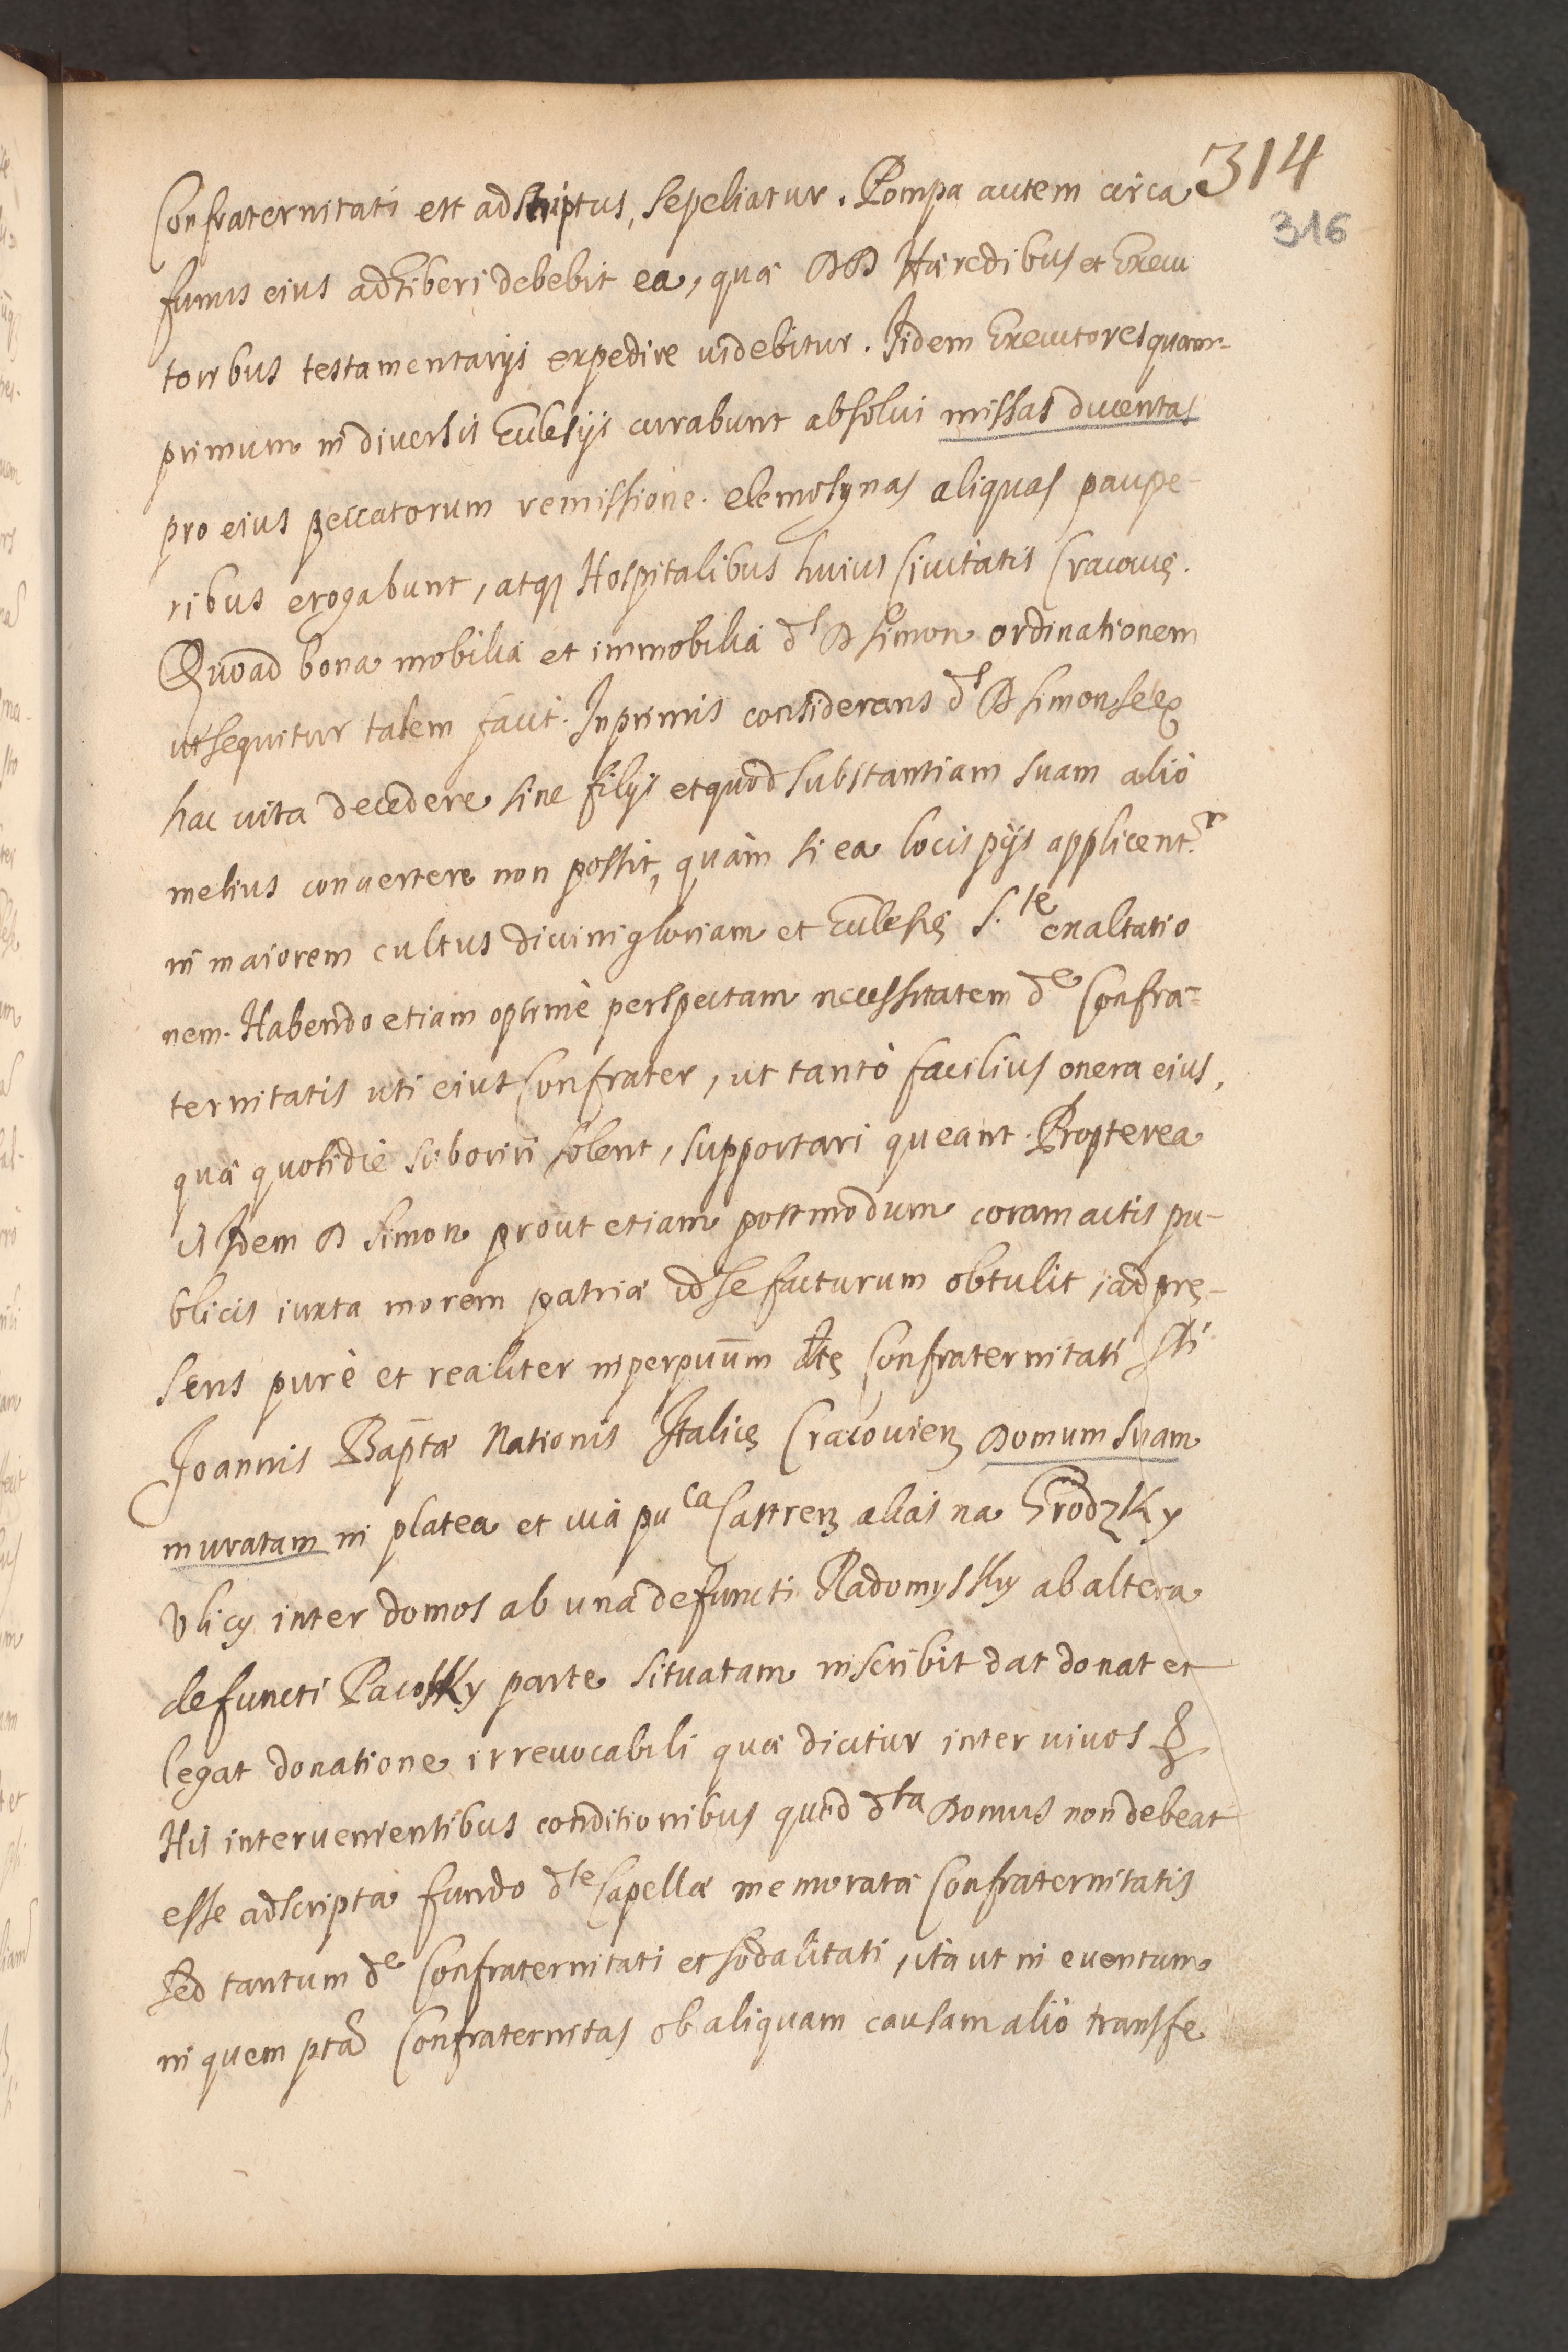 314
316
Confraternitati est adscriptus, sepeliatur. Pompa autem circa
funus eius adhiberi debebit ea, quæ DD Hæredibus et Execu
toribus testamentarijs expedire uidebitur. Iidem Executores quam-
primum in diuersis Ecclesijs curabunt absolui missas ducentas
pro eius peccatorum remissione. elemosynas aliquas paupe-
ribus erogabunt, atq₃ Hospitalibus huius Ciuitatis Cracouię.
Quoad bona mobilia et immobilia ds D Simon ordinationem
ut sequitur talem facit. Inprimis considerans ds D Simon se ex
hac uita decedere sine filijs et quod substantiam suam alio
melius conuertere non possit, quàm si ea locis pijs applicent.r
in maiorem cultus diuini gloriam et Ecclesię S.te exaltatio
nem. Habendo etiam optimè perspectam necessitatem de Confra-
ternitatis uti eius Confrater, ut tantò facilius onera eius,
quæ quotidie suboriri solent, supportari queant. Propterea
is Idem D Simon prout etiam postmodum coram actis pu-
blicis iuxta morem patriæ id se facturum obtulit, ad prę-
sens purè et realiter inperpuūm dtę Confraternitati Sti
Joannis Baptæ Nationis Italicę Cracouien₃ Domum suam
muratam in platea et uiâ puca Castren₃ aliàs na Grodzky
Vlicy inter domos ab unâ defuncti Radomysky ab altera
defuncti Pacosky parte situatam inscribit dat donat et
legat donatione irreuocabili quæ dicitur inter uiuos &
His interuenientibus conditionibus quòd dta Domus non debeat
esse adscripta fundo dte Capellæ memoratæ Confraternitatis
sed tantum de Confraternitati et sodalitati, ita ut in euentum
in quem pta Confraternitas ob aliquam causam aliò transfe